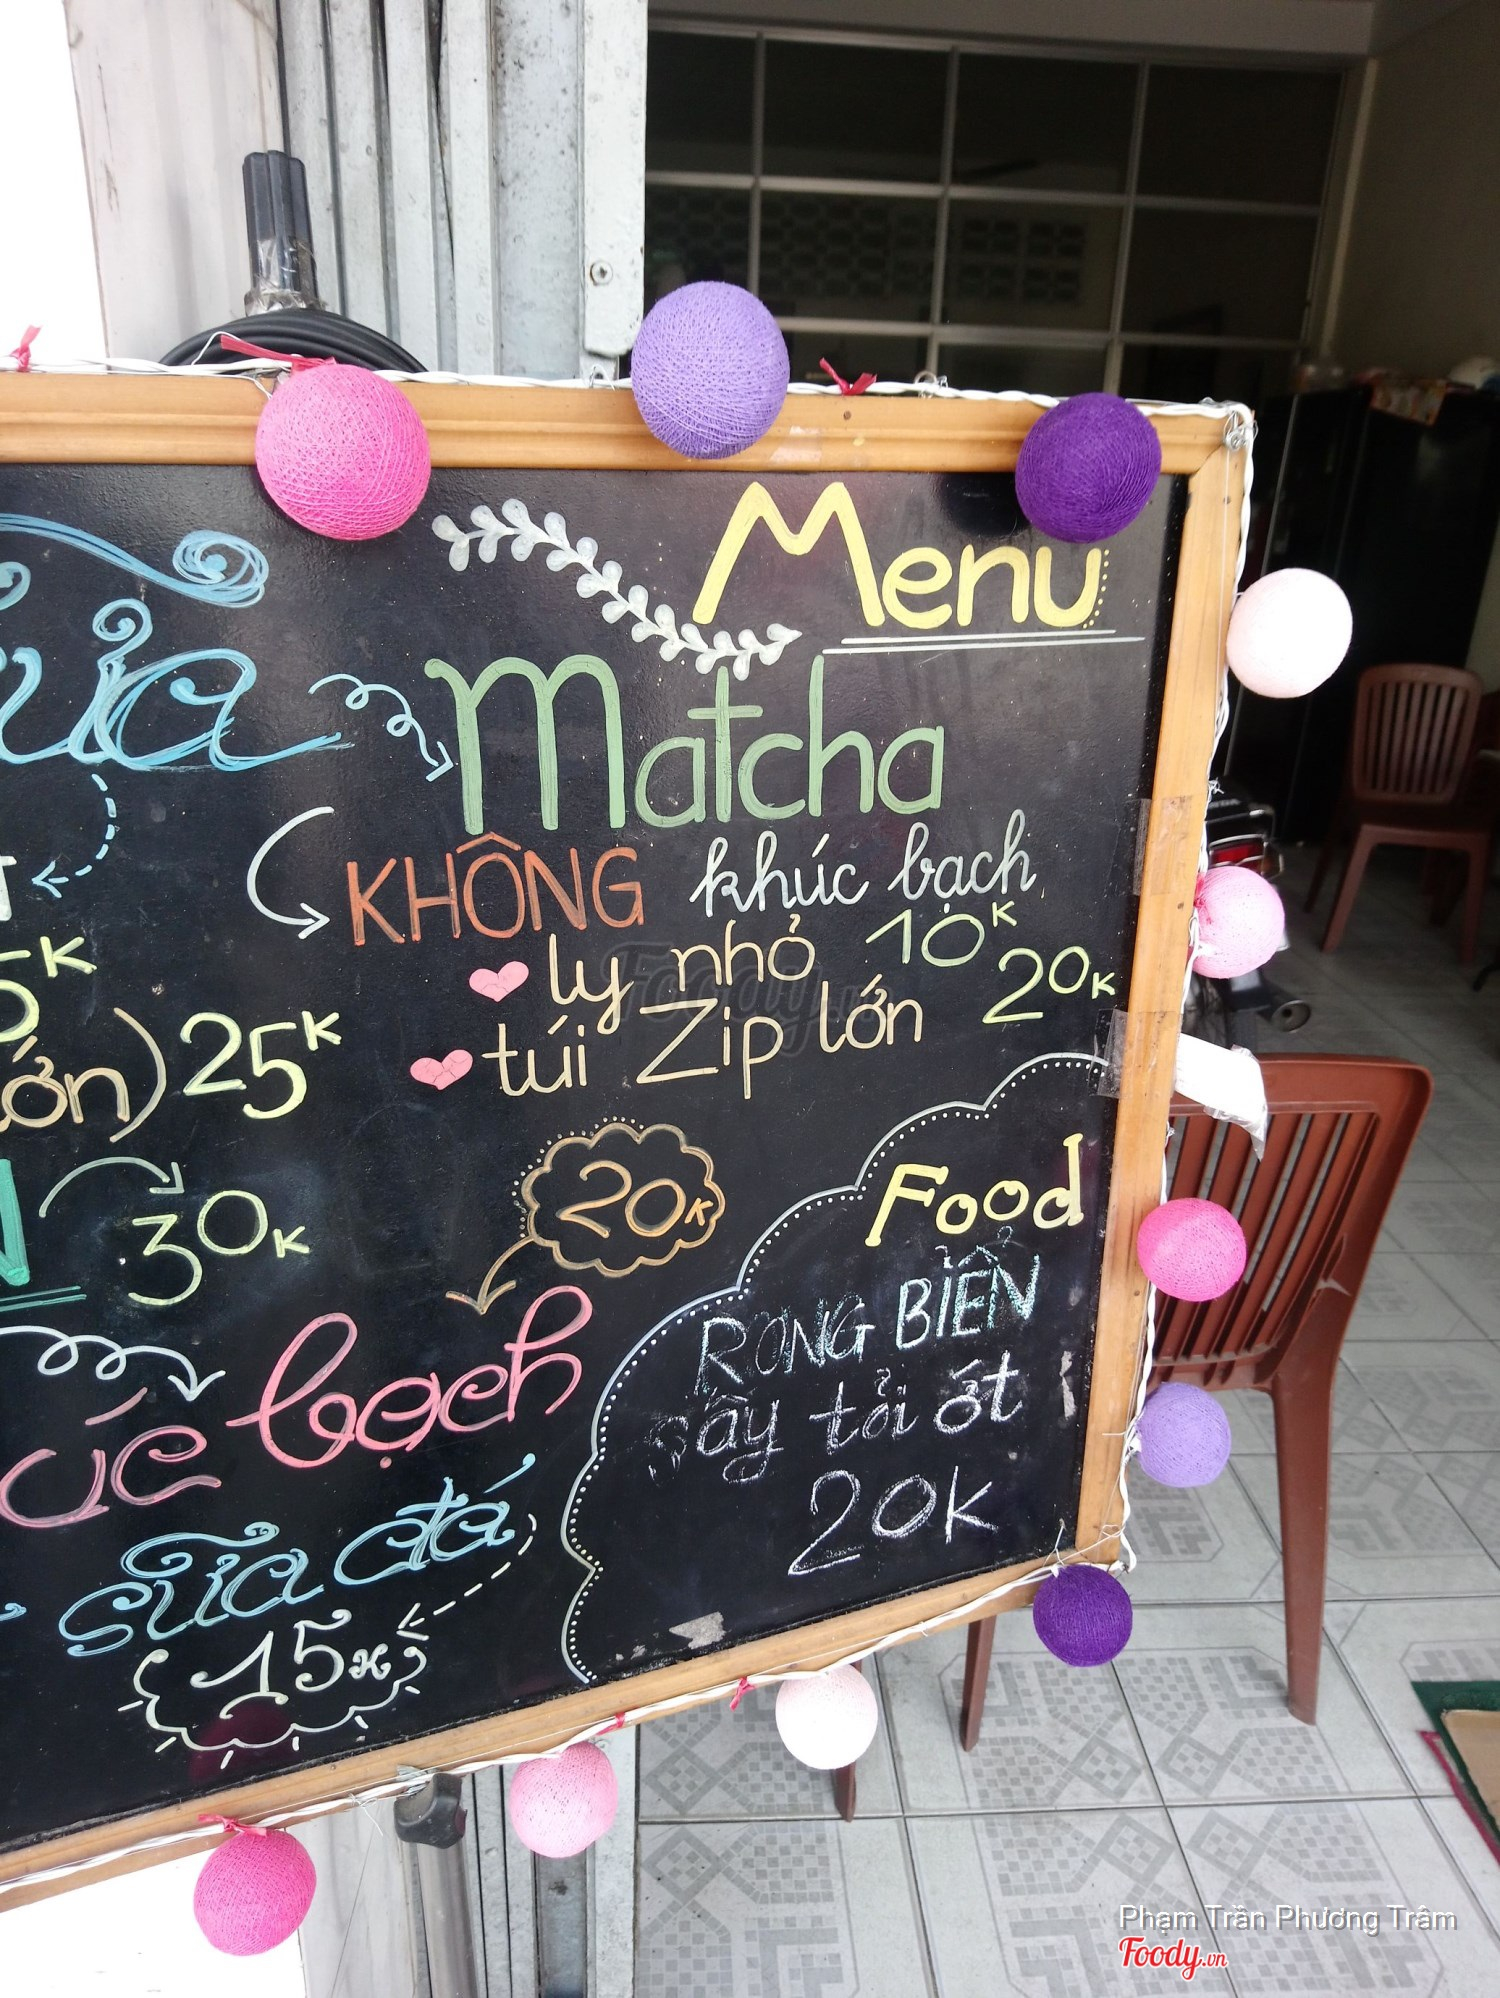 Menu
Sữa
Matcha
KHÔNG khúc bạch
ly nhỏ 10K
túi Zip lớn 20K
5K
lớn) 25K
N 30K
20K
úc bạch
sữa đá
15K
Food
RONG BIỂN
sấy tỏi ớt
20K
Phạm Trần Phương Trâm
Foody.vn